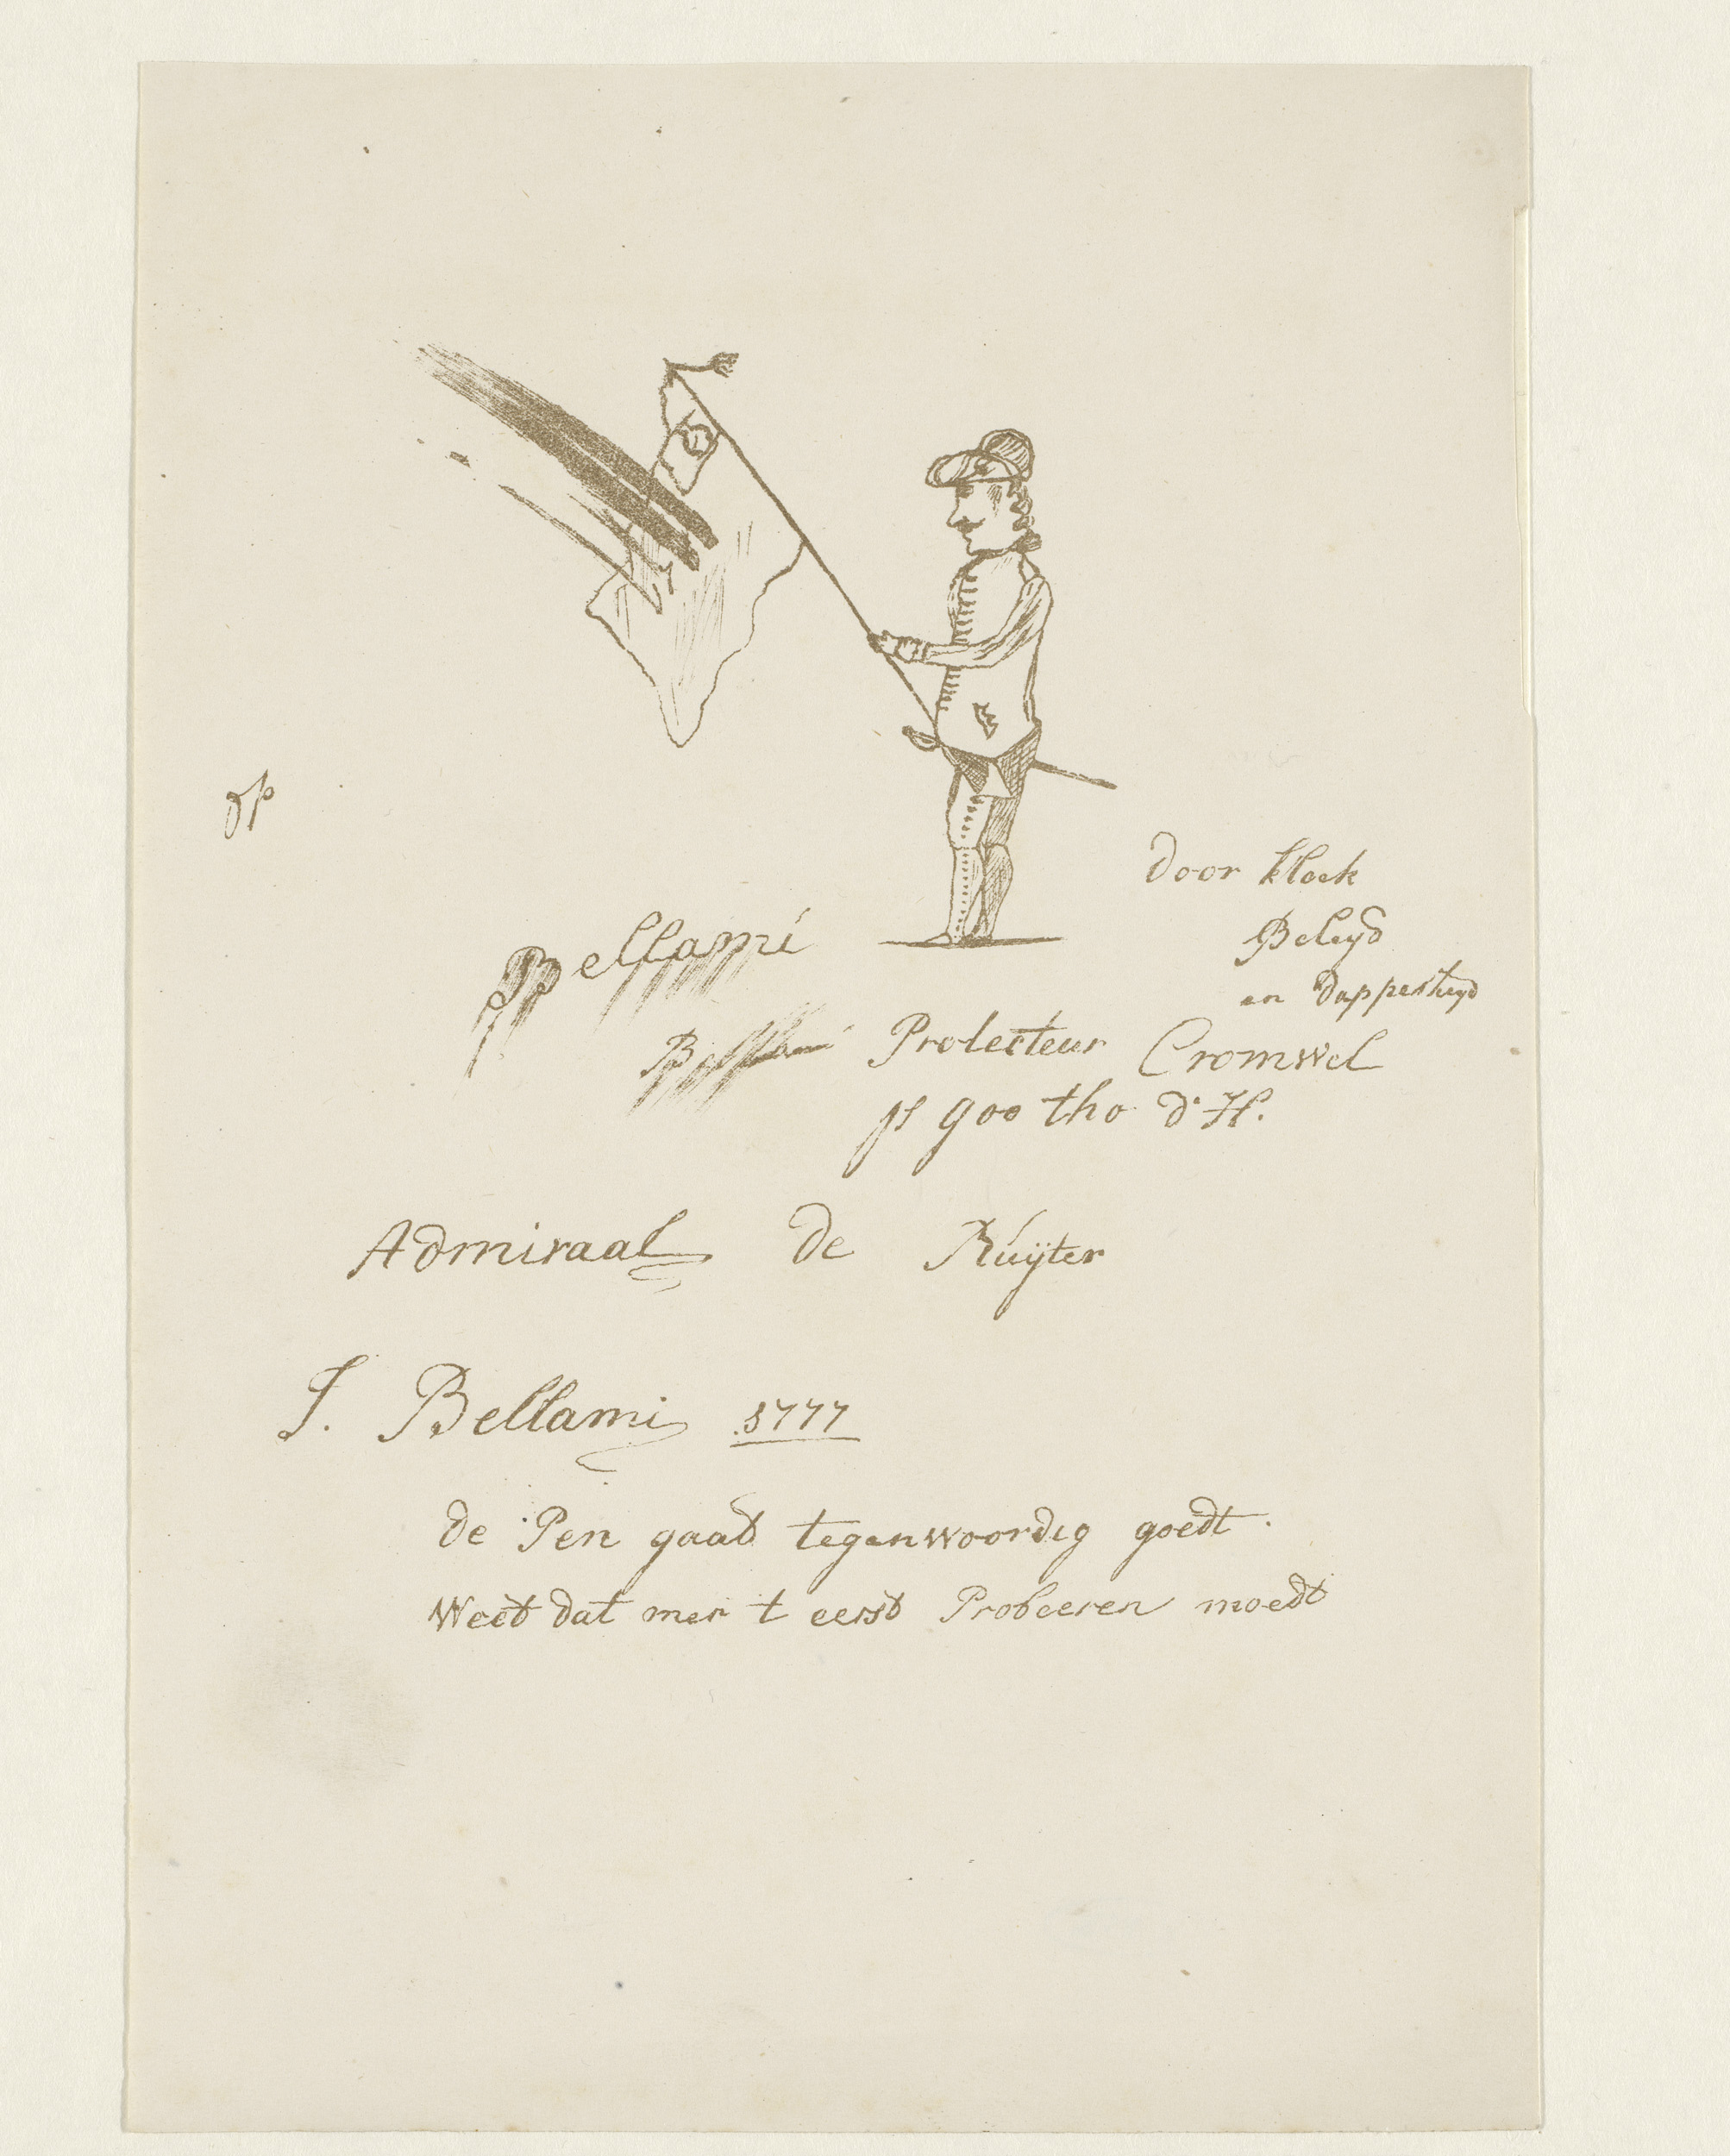 op
door kloek
Beleyd
en Dapperheyd
Bellami
Bellami
Protecteur Cromwel
js goo tho d' H.
Admiraal de Ruÿter
J. Bellami 1777
de Pen gaat tegenwoordig goedt.
Weet dat men t eerst Probeeren moedt